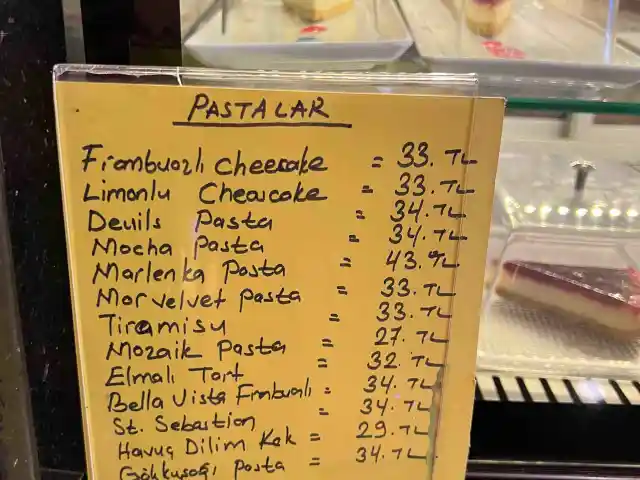 PASTALAR
Frambuazlı Cheesake = 33. TL
Limonlu Cheascake = 33. TL
Devils Pasta = 34. TL
Mocha Pasta = 34. TL
Marlenka Pasta = 43. TL
Morvelvet Pasta = 33. TL
Tiramisu = 33. TL
Mozaik Pasta = 27. TL
Elmalı Tart = 32. TL
Bella Vista Frmbuazlı = 34. TL
St. Sebastian = 34. TL
Havuç Dilim Kek = 29. TL
Gökkuşağı Pasta = 34. TL